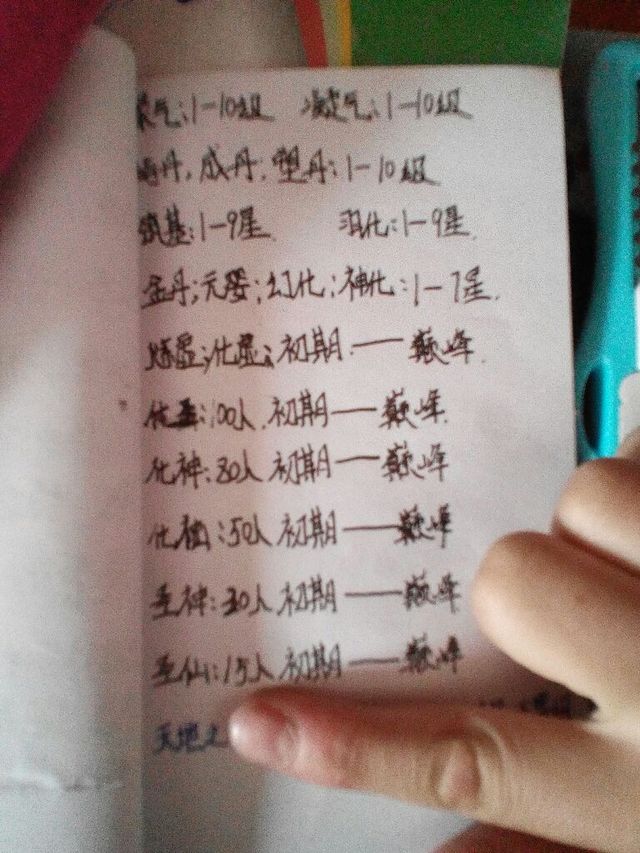 气:1-10级 凝气:1-10级
丹,成丹,塑丹:1-10级
筑基:1-9星 羽化:1-9星.
金丹;元婴;幻化;神化:1-7星.
炼虚;化虚;初期——巅峰.
化圣:100人.初期——巅峰.
化神:80人初期——巅峰
化仙:50人初期——巅峰
圣神:30人初期——巅峰
圣仙:15人初期——巅峰
天地之